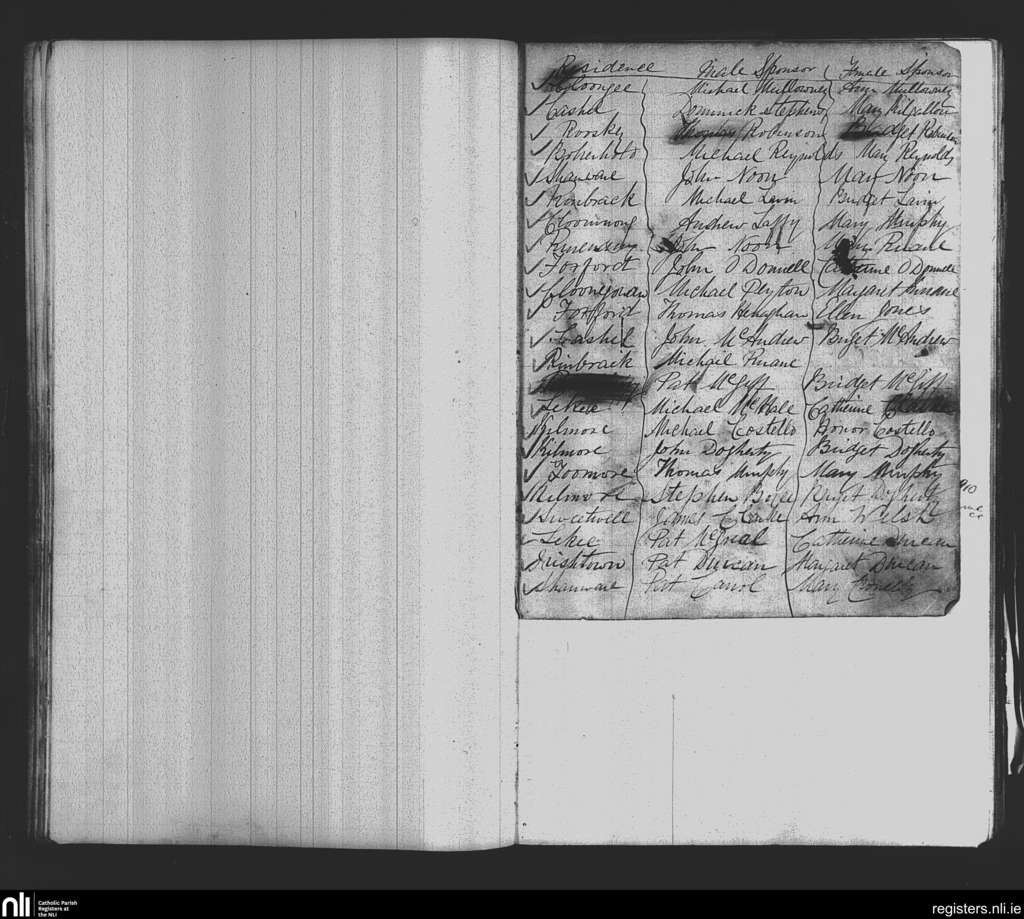 Residence Male Sponsor Female Sponsor
Cloongee Michael Mullowney Ann Mullowney
Cashel Dominick Stephens Mary Kilgallon
Rorsky Thomas Robinson Bridget Robinson
Boherholo Michael Reynolds Mary Reynolds
Shanvare John Noon Mary Noon
Rinbrack Michael Lavin Bridget Lavin
Andrew Laffy Mary Murphy
John Noon Ruane
Forford John O Donnell Catherine O Donnell
Michael Peyton Margaret
Forford Thomas Heneghan Ellen Jones
Cashel John McAndrew Briget McAndrew
Rinbraik Michael Ruane
Pat Bridget
Likee Michael McHale Catherine
Kilmore Michael Costello Honor Costello
Kilmore John Dogherty Bridget Dogherty
Toomore Thomas Murphy Mary Murphy
Kilmore Stephen
Sweetwell James Clarke Ann Welsh
Likee Pat Catherine
Irishtown Pat Duncan Margaret Duncan
Shanvare Pat Carrol Mary
nli Catholic Parish
Registers at
the NLI
registers.nli.ie